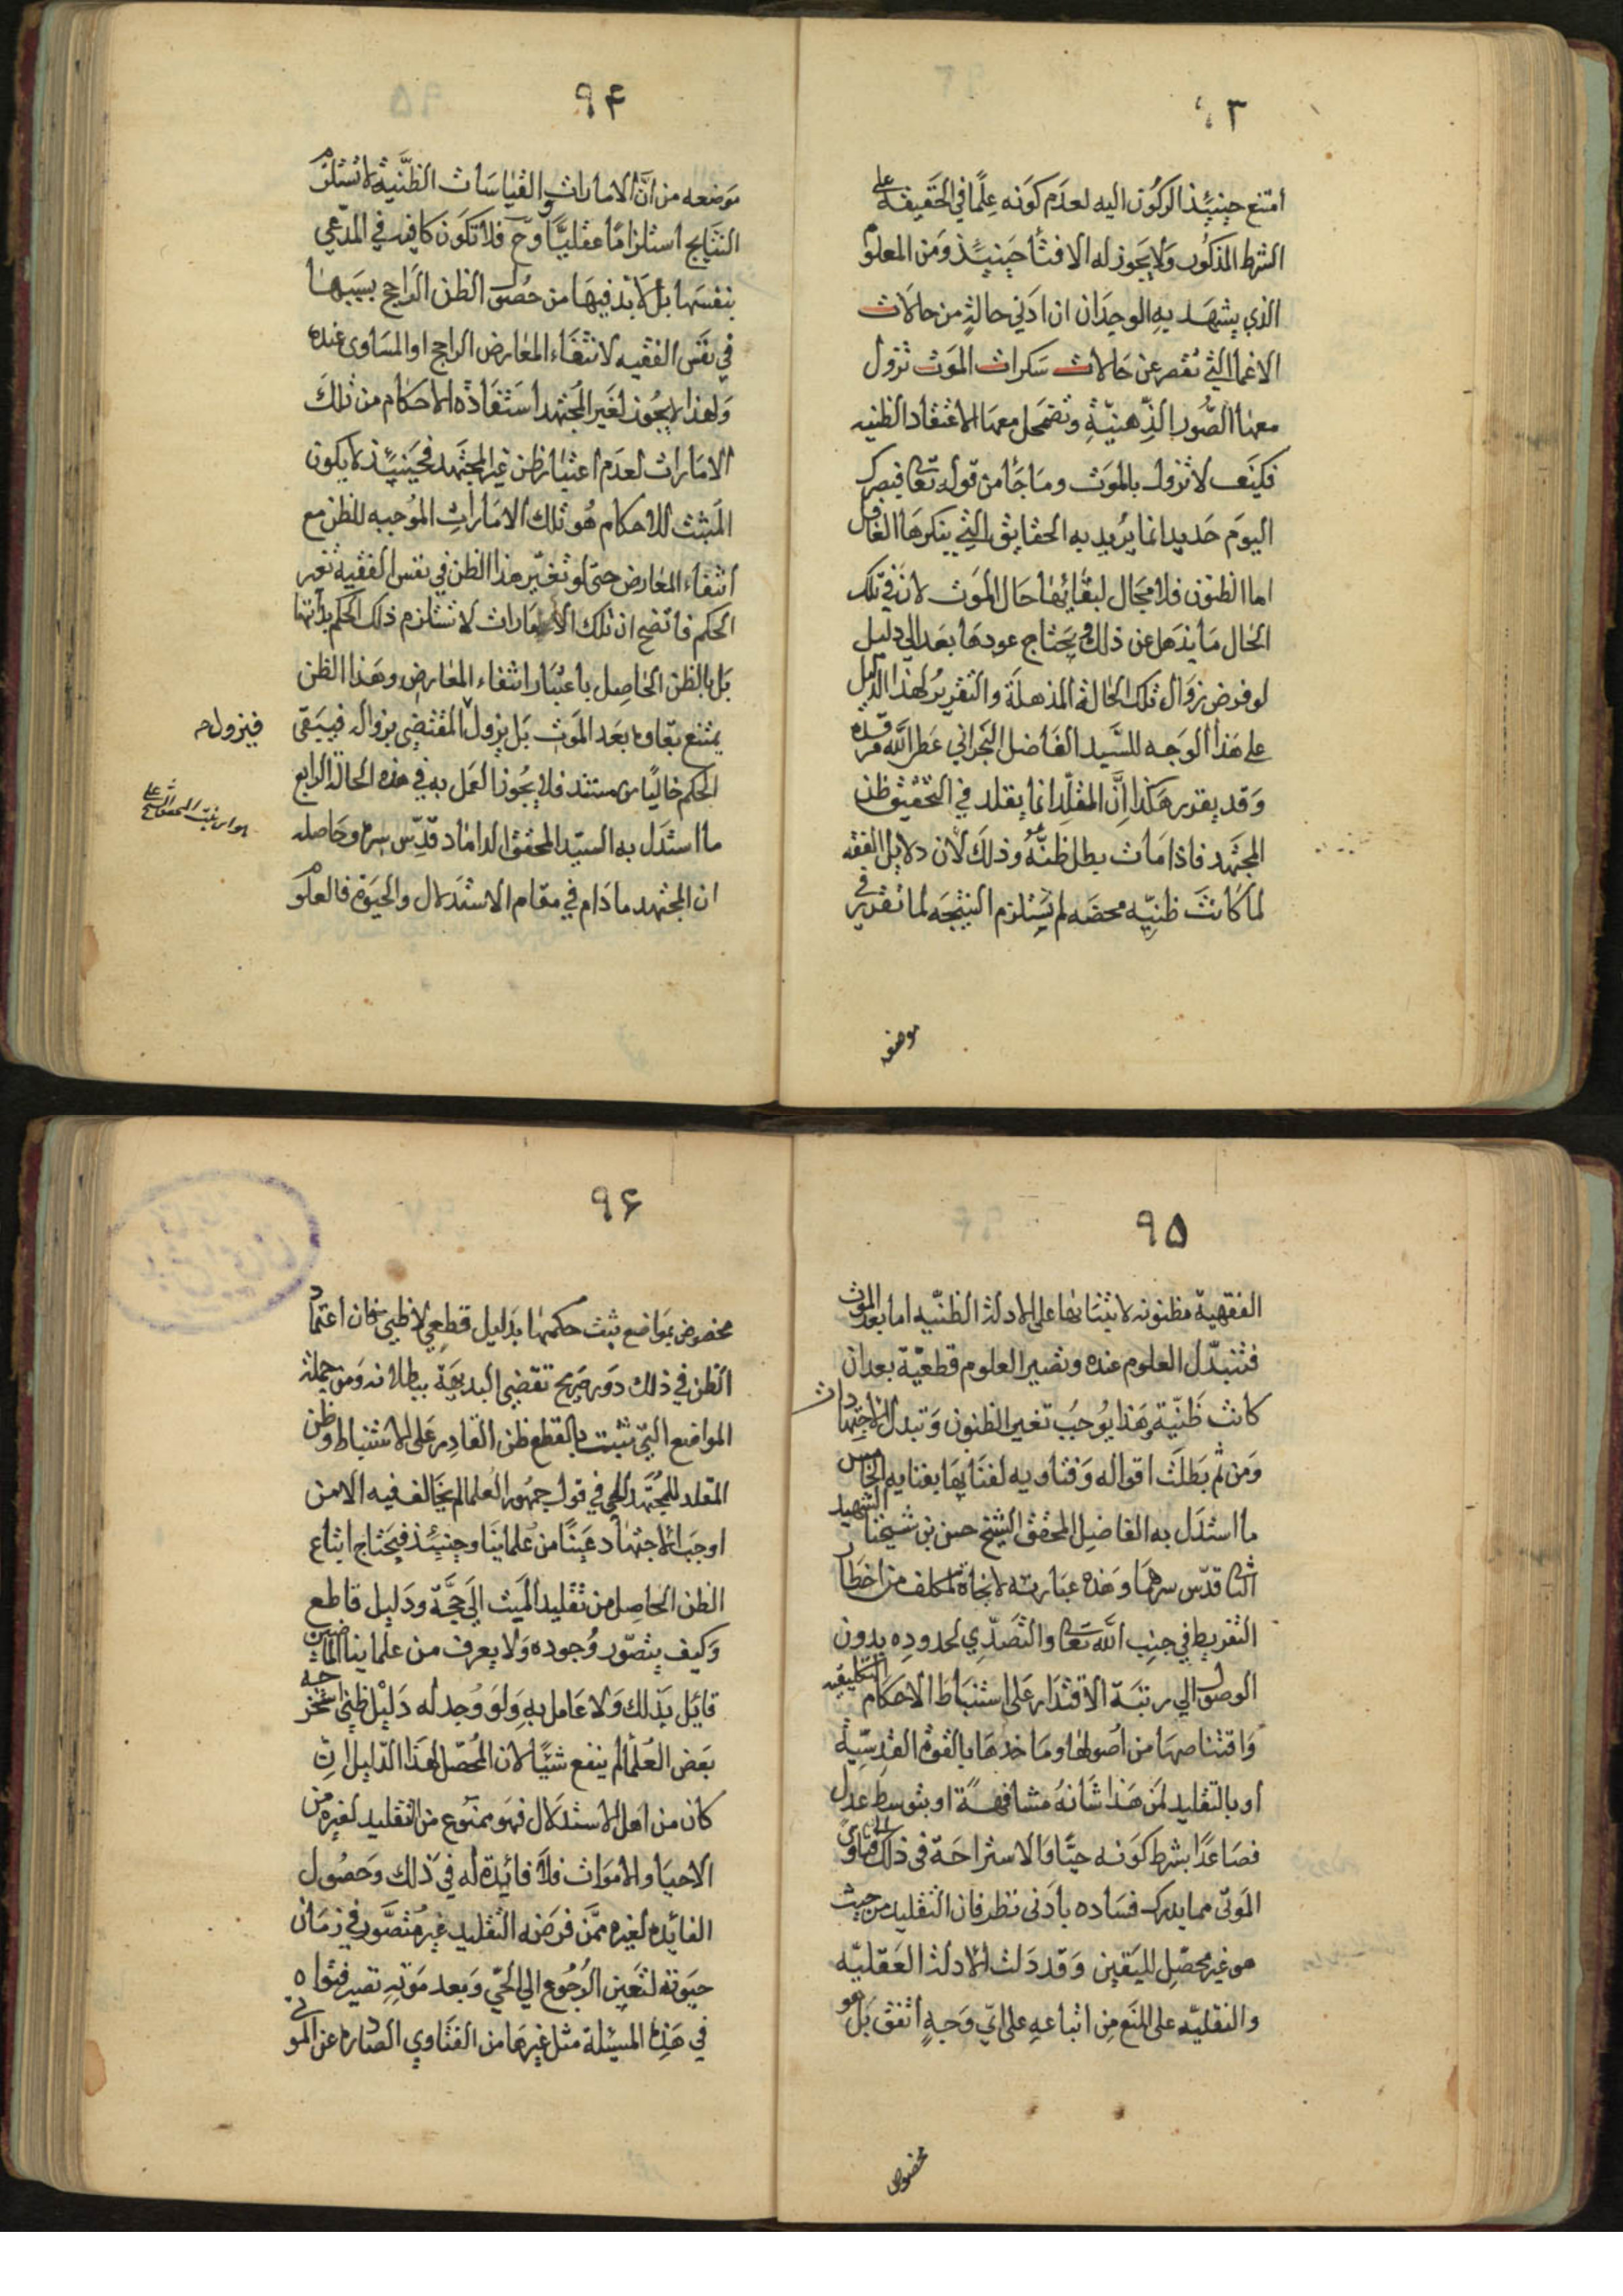 ٩٣
امتنع حينئذ الركون اليه لعدم كونه علمًا في الحقيقة على
الشرط المذكور ولا يجوز له الافتأ حينئذ ومن المعلوم
الذي يشهد به الوجدان ان ادني حالة من حالات
الاغما التي تقصر عن حالات سكرات الموت تزول
معها الصور الذهنية وتضمحل معها الاعتقاد الظنيه
فكيف لا تزول بالموت وما جأ من قوله تعا فبصرك
اليوم حديد انما يريد به الحقايق التي ينكرها الغافل
اما الظنون فلا مجال لبقائها حال الموت لان في تلك
الحال ما يذهل عن ذلك ويحتاج عودها بعد الي دليل
لو فرض زوال تلك الحالة المذهلة والتقرير لهذا الدليل
علي هذا الوجه للسيد الفاضل البحراني عطر الله مرقده
وقد يقرر هكذا إنّ المقلد انما يقلد في التحقيق ظن
المجتهد فاذا مات بطل ظنّه وذلك لأن دلايل الفقه
لما كانت ظنيّه محضه لم يستلزم النتيجه لما تقرر في
موضعه
٩۴
موضعه من انّ الامارات والقياسات الظنّية لا تستلزم
النتايج استلزامًا عقليًّا وح فلا تكون كافيه في المدّعي
بنفسها بل لا بد فيها من حصول الظن الراجح بسببها
في نفس الفقيه لانتفاء المعارض الراجح او المساوى عنده
ولهذا لا يجوز لغير المجتهد استفاذة الاحكام من تلك
الامارات لعدم اعتبار ظن غير المجتهد فحينئذ لا يكون
المثبت للاحكام هو تلك الامارات الموجبه للظن مع
انتفاء المعارض حتى لو تغيّر هذا الظن في نفس الفقيه تغير
الحكم فاتضح ان تلك الامارات لا تستلزم ذلك الحكم بذاتها
بل بالظن الحاصل باعتبار انتفاء المعارض وهذا الظن
يمتنع بقاوه بعد الموت بل يزول المقتضي بزواله فيبقى
فيزول ح
الحكم خاليًا من مستند فلا يجوز العمل به في هذه الحالة الرابع
ما استدل به السيّد المحقق الداماد قدّس سره وحاصله
ان المجتهد ما دام في مقام الاستدلال والحيوة فالعلوم
٩۵
الفقهية مظنونه لابتنائها على الادلة الظنّيه اما بعد الموت
فتتبدّل العلوم عنده وتصير العلوم قطعيّة بعد ان
كانت ظنّية وهذا يوجب تغير الظنون وتبدل الاجتهادات
ومن ثم بطلت اقواله وفتاويه لفنائها بفنايه الخامس
ما استدل به الفاضل المحقق الشيخ حسن بن شيخنا الشهيد
الثا قدّس سرهما وهذه عبارته لا نجاة لمكلف من اخطار
التفريط في جنب الله تعا والتصدّي لحدوده بدون
الوصول الي رتبة الاقتدار على استنباط الاحكام التكليفيه
واقتناصها من اصولها وماخذها بالقوة القدسيّة
او بالتقليد لمن هذا شانه مشافهةً او بتوسط عدل
فصاعدًا بشرط كونه حيًّا والاستراحة في ذلك الي فتاوى
الموتى مما يدرك فساده بادنى نظر فان التقليد من حيث
هو غير محصّل لليقين وقد دلت الادلة العقليّه
والنقليّه على المنع من اتباعه على ايّ وجهٍ اتفق بل هو
مخصوص
٩۶
مخصوص بمواضع يثبت حكمها بدليل قطعي لا ظني فان اعتماد
الظن في ذلك دور صريح تقضي البديهة ببطلانه ومن جملة
المواضع التي ثبتت بالقطع ظن القادر على الاستنباط وظن
المقلد للمجتهد الحي في قول جمهور العلما لم يخالف فيه الا من
اوجب الاجتهاد عينًا من علماينا وحينئذ فيحتاج اتباع
الظن الحاصل من تقليد الميت الي حجّة ودليل قاطع
وكيف يتصوّر وجوده ولا يعرف من علماينا الماضين
قايل بذلك ولا عامل به ولو وجد له دليل ظني استخرجه
بعض العلما لم ينفع شيئًا لان المحصّل لهذا الدليل ان
كان من اهل الاستدلال فهو ممنوع من التقليد لغيره من
الاحيا والاموات فلا فائدة له في ذلك وحصول
الفائده لغيره ممّن فرضه التقليد غير متصوّر في زمان
حيوته لتعين الرجوع الي الحيّ وبعد موته تصير فتواه
في هذه المسئلة مثل غيرها من الفتاوي الصادره عن الموتى